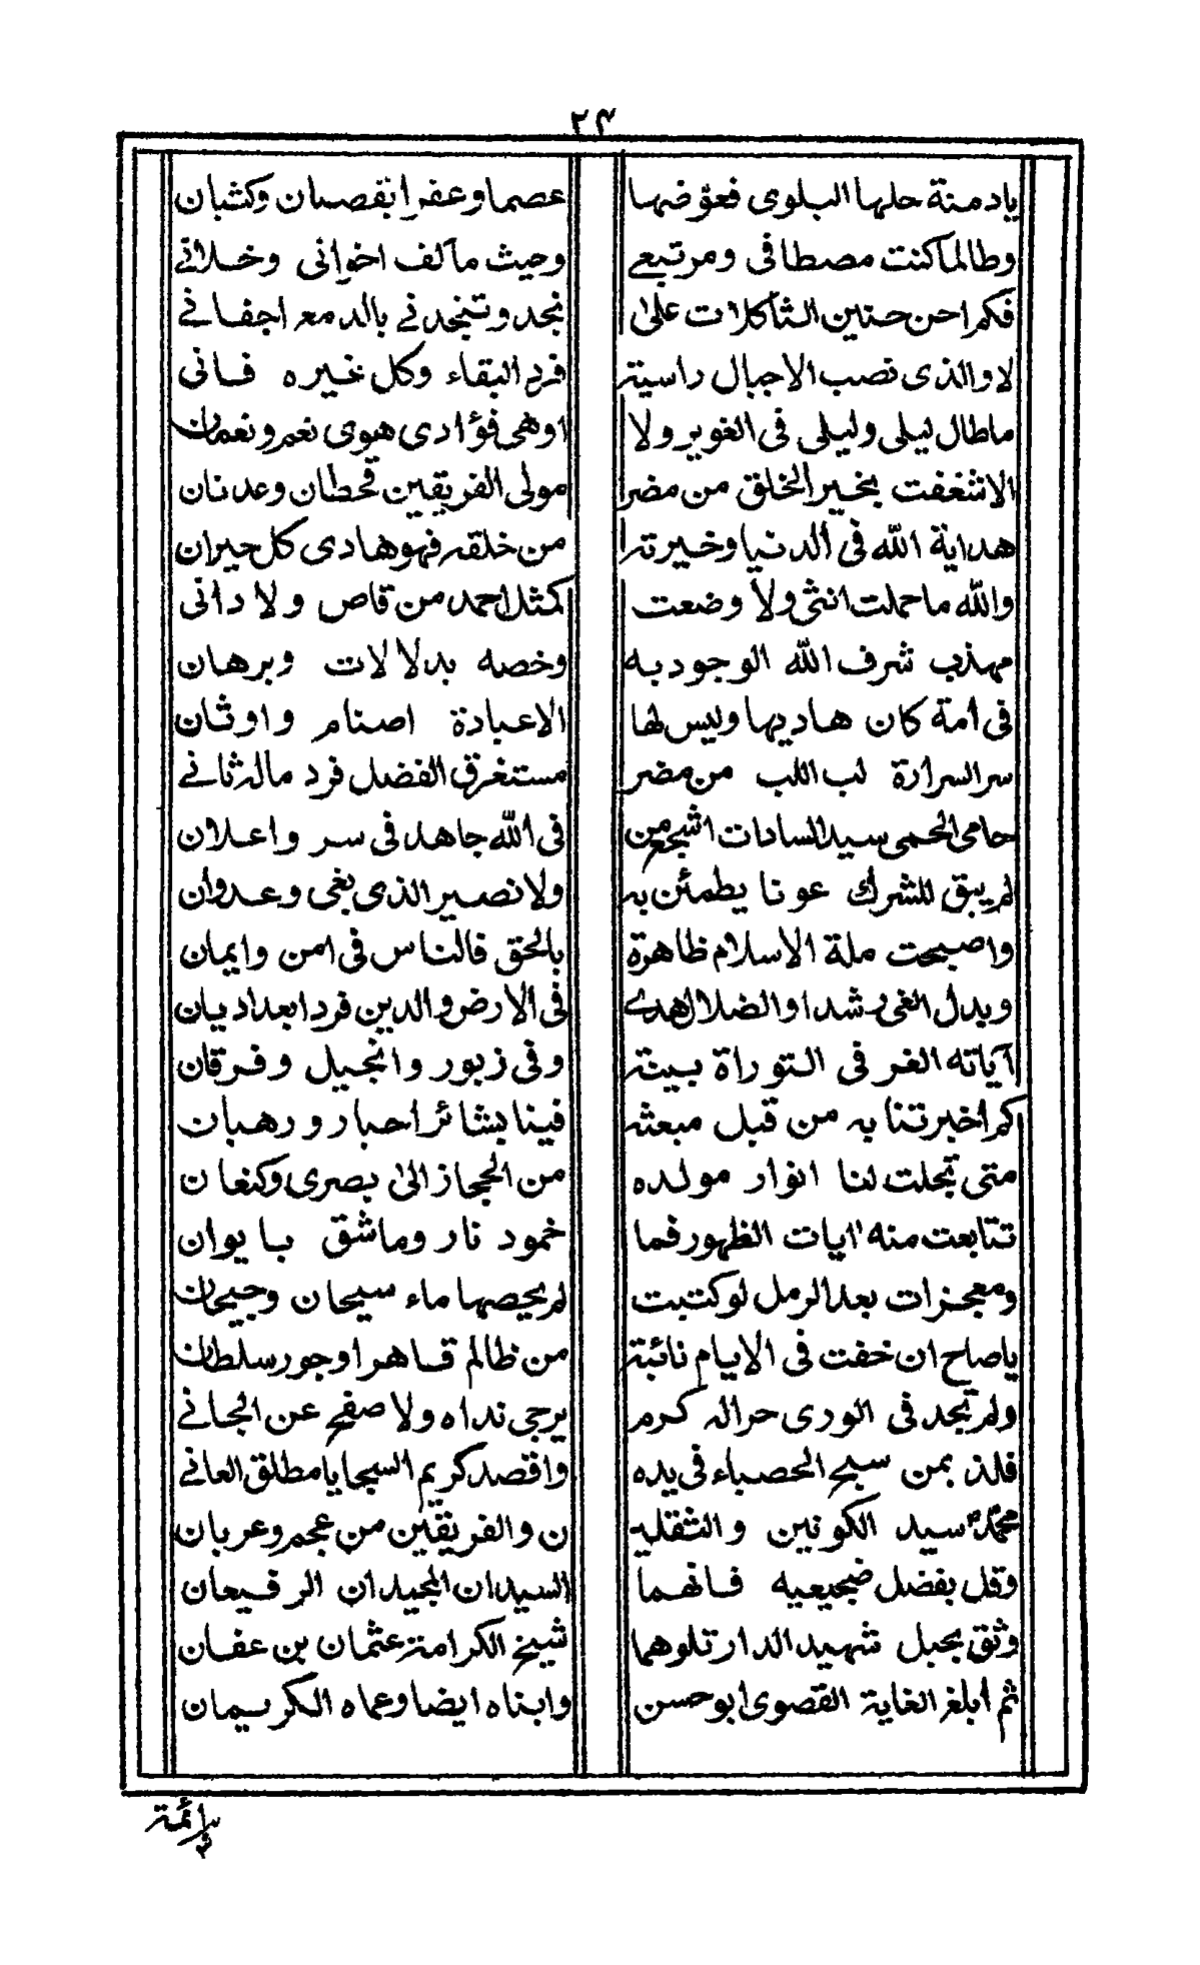 ٢٤
يا دمنة حلها البلوى فعوضها عصما وعفرا بقصبان وكثبان
وطالما كنت مصطافى ومرتبعے وحيث مآلف اخوانى وخلانے
فكم احن حنين الثاكلات على نجد وتنجدنے بالدمع اجفانے
لا والذى نصب الاجبال راسية فرد البقاء وكل غيره فانى
ما طال ليلى وليلى فى الغوير ولا اوهى فؤادى هوى نعم ونعمان
الا شغفت بخير الخلق من مضر مولى الفريقين قحطان وعدنان
هداية الله فى الدنيا وخيرته من خلقه فهو هادى كل حيران
والله ما حملت انثى ولا وضعت كمثل احمد من قاص ولا دانى
مهذب شرف الله الوجود به وخصه بدلالات وبرهان
فى أمة كان هاديها وليس لها الا عبادة اصنام واوثان
سر السرارة لب اللب من مضر مستغرق الفضل فرد ماله ثانے
حامى الحمى سيد السادات اشجع من فى الله جاهد فى سر واعلان
لم يبق للشرك عونا يطمئن به ولا نصير الذى بغى وعدوان
واصبحت ملة الاسلام ظاهرة بالحق فالناس فى امن وايمان
وبدل الغى رشدا والضلال هدے فى الارض والدين فردا بعد اديان
آياته الغر فى التوراة بينة وفى زبور وانجيل وفرقان
كم اخبرتنا به من قبل مبعثه فينا بشائر احبار ورهبان
متى تجلت لنا انوار مولده من الحجاز الى بصرى وكنعان
تتابعت منه ايات الظهور فما خمود نار وما شق بايوان
ومعجزات بعد الرمل لو كتبت لم يحصها ماء سيحان وجيحان
يا صاح ان خفت فى الايام نائبة من ظالم قاهر او جور سلطان
ولم تجد فى الورى حرا له كرم يرجى نداه ولا صفح عن الجانے
فلذ بمن سبح الحصباء فى يده واقصد كريم السجايا مطلق العانے
محمد سيد الكونين والثقليـ ن والفريقين من عجم وعربان
وقل بفضل ضجيعيه فانهما السيدان المجيدان الرفيعان
وثق بحبل شهيد الدار تلوهما شيخ الكرامة عثمان بن عفان
ثم ابلغ الغاية القصوى ابو حسن وابناه ايضا وعماه الكريمان
ائمة